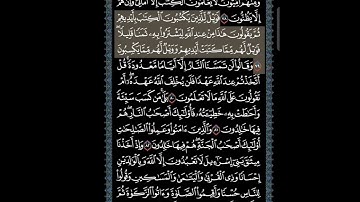 وَمِنْهُمْ أُمِّيُّونَ لَا يَعْلَمُونَ الْكِتَٰبَ إِلَّا أَمَانِيَّ وَإِنْ هُمْ
إِلَّا يَظُنُّونَ ٧٨ فَوَيْلٌ لِّلَّذِينَ يَكْتُبُونَ الْكِتَٰبَ بِأَيْدِيهِمْ
ثُمَّ يَقُولُونَ هَٰذَا مِنْ عِندِ اللَّهِ لِيَشْتَرُوا بِهِ ثَمَنًا قَلِيلًا
فَوَيْلٌ لَّهُم مِّمَّا كَتَبَتْ أَيْدِيهِمْ وَوَيْلٌ لَّهُم مِّمَّا يَكْسِبُونَ
٧٩ وَقَالُوا لَن تَمَسَّنَا النَّارُ إِلَّا أَيَّامًا مَّعْدُودَةً قُلْ
أَتَّخَذْتُمْ عِندَ اللَّهِ عَهْدًا فَلَن يُخْلِفَ اللَّهُ عَهْدَهُ أَمْ
تَقُولُونَ عَلَى اللَّهِ مَا لَا تَعْلَمُونَ ٨٠ بَلَىٰ مَن كَسَبَ سَيِّئَةً
وَأَحَٰطَتْ بِهِ خَطِيئَتُهُ فَأُولَٰئِكَ أَصْحَٰبُ النَّارِ هُمْ
فِيهَا خَٰلِدُونَ ٨١ وَالَّذِينَ ءَامَنُوا وَعَمِلُوا الصَّٰلِحَٰتِ
أُولَٰئِكَ أَصْحَٰبُ الْجَنَّةِ هُمْ فِيهَا خَٰلِدُونَ ٨٢ وَإِذْ أَخَذْنَا
مِيثَٰقَ بَنِي إِسْرَٰءِيلَ لَا تَعْبُدُونَ إِلَّا اللَّهَ وَبِالْوَٰلِدَيْنِ
إِحْسَانًا وَذِي الْقُرْبَىٰ وَالْيَتَٰمَىٰ وَالْمَسَٰكِينِ وَقُولُوا
لِلنَّاسِ حُسْنًا وَأَقِيمُوا الصَّلَوٰةَ وَءَاتُوا الزَّكَوٰةَ ثُمَّ